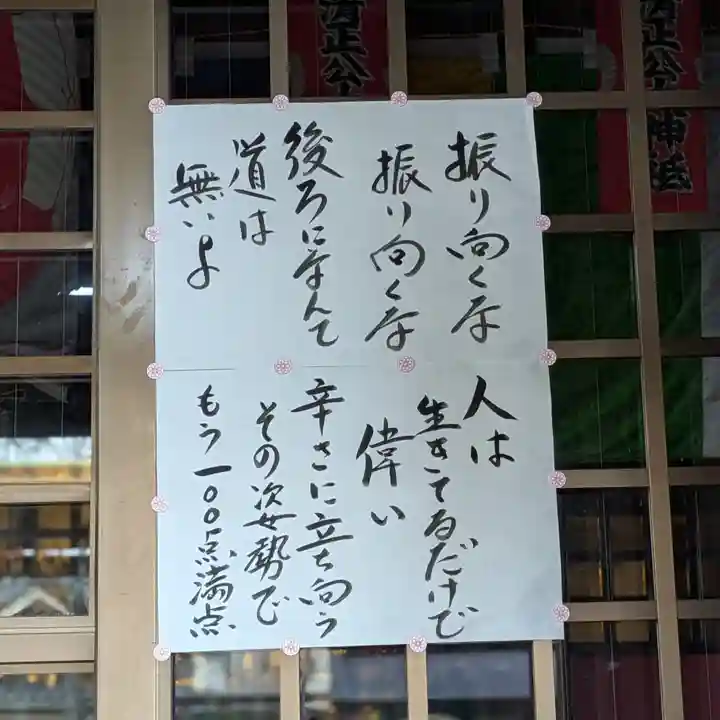 振り向くな
振り向くな
後ろになんて
道は
無いよ
人は
生きてるだけで
偉い
辛さに立ち向う
その姿勢で
もう一〇〇点満点
清正公
清正公
神祇